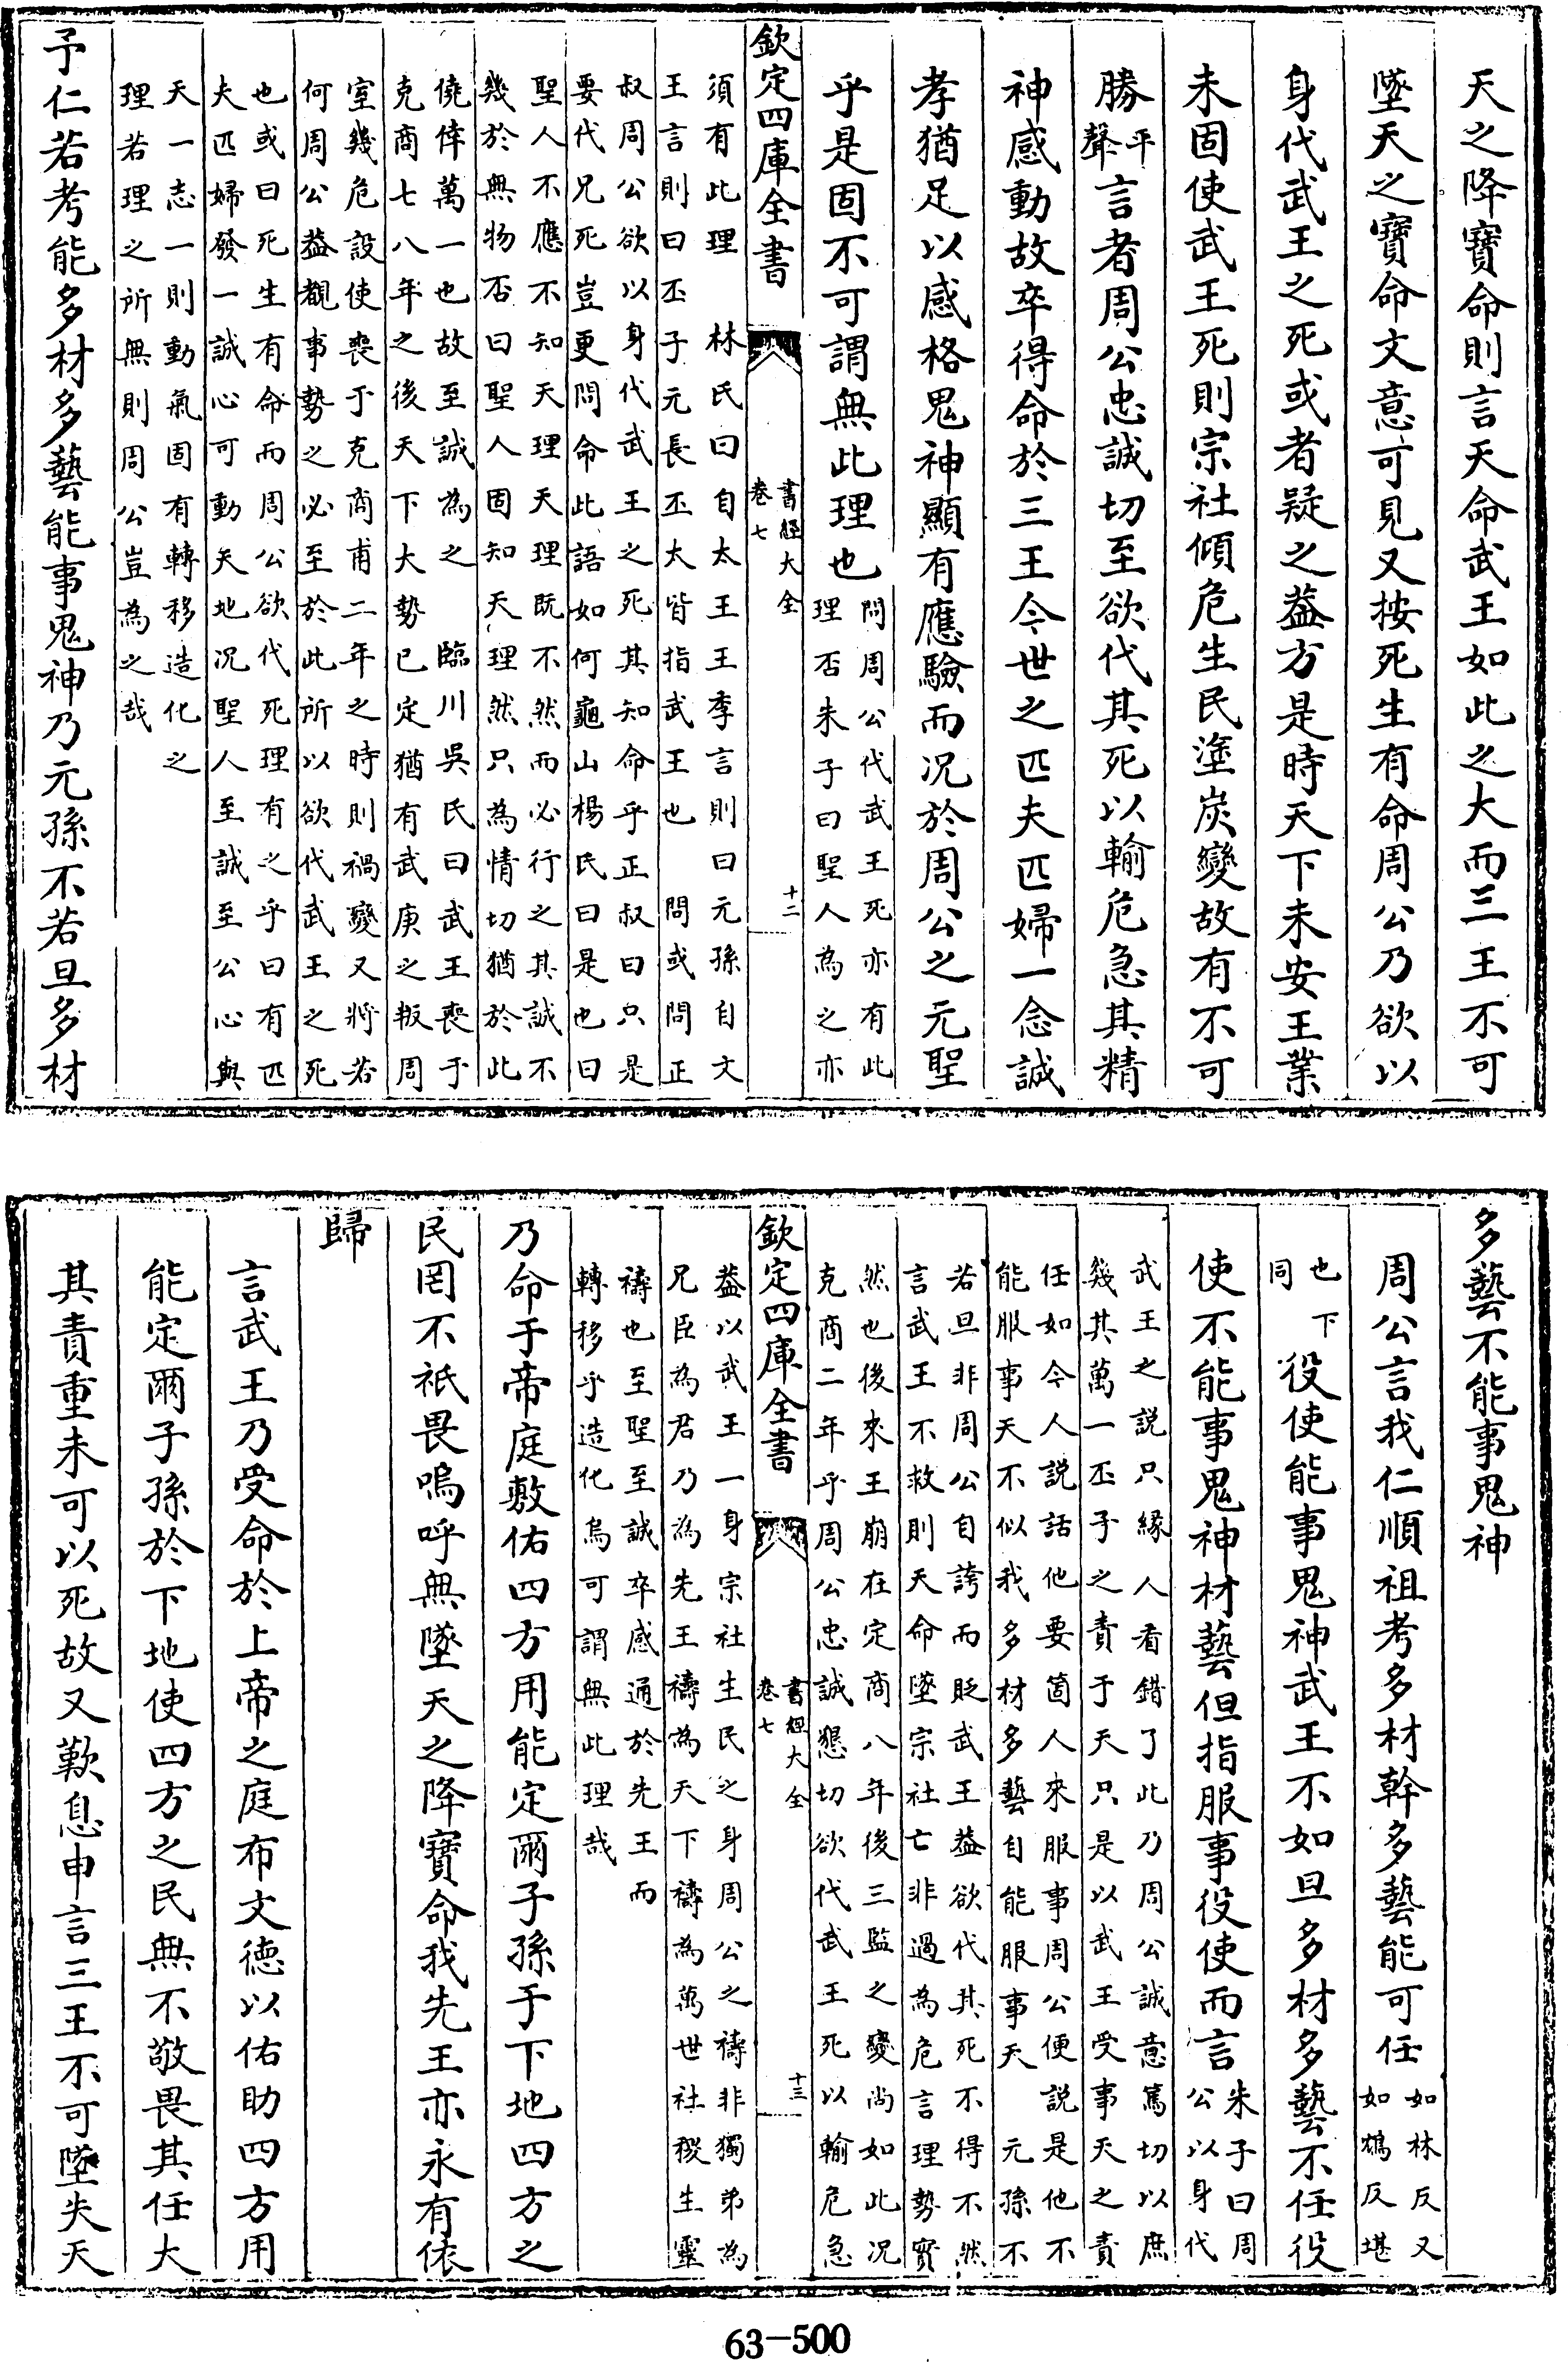 天之降寶命則言天命武王如此之大而三王不可
墜天之寶命文意可見又按死生有命周公乃欲以
身代武王之死或者疑之葢方是時天下未安王業
未固使武王死則宗社傾危生民塗炭變故有不可
勝平聲言者周公忠誠切至欲代其死以輸危急其精
神感動故卒得命於三王今世之匹夫匹婦一念誠
孝猶足以感格鬼神顯有應驗而况於周公之元聖
乎是固不可謂無此理也問周公代武王死亦有此
理否朱子曰聖人為之亦
欽定四庫全書 書經大全 卷七 十二
須有此理 林氏曰自太王王季言則曰元孫自文
王言則曰丕子元長丕太皆指武王也 問或問正
叔周公欲以身代武王之死其知命乎正叔曰只是
要代兄死豈更問命此語如何龜山楊氏曰是也曰
聖人不應不知天理天理既不然而必行之其誠不
幾於無物否曰聖人固知天理然只為情切猶於此
僥倖萬一也故至誠為之 臨川吳氏曰武王喪于
克商七八年之後天下大勢已定猶有武庚之叛周
室幾危設使喪于克商甫二年之時則禍變又將若
何周公葢觀事勢之必至於此所以欲代武王之死
也或曰死生有命而周公欲代死理有之乎曰有匹
夫匹婦發一誠心可動天地况聖人至誠至公心與
天一志一則動氣固有轉移造化之
理若理之所無則周公豈為之哉
予仁若考能多材多藝能事鬼神乃元孫不若旦多材
多藝不能事鬼神
周公言我仁順祖考多材幹多藝能可任如林反又
如鴆反堪
也下
同役使能事鬼神武王不如旦多材多藝不任役
使不能事鬼神材藝但指服事役使而言朱子曰周
公以身代
武王之説只緣人看錯了此乃周公誠意篤切以庶
幾其萬一丕子之責于天只是以武王受事天之責
任如今人説話他要箇人來服事周公便説是他不
能服事天不似我多材多藝自能服事天 元孫不
若旦非周公自誇而貶武王葢欲代其死不得不然
言武王不救則天命墜宗社亡非過為危言理勢實
然也後來王崩在定商八年後三監之變尚如此况
克商二年乎周公忠誠懇切欲代武王死以輸危急
欽定四庫全書 書經大全 卷七 十三
葢以武王一身宗社生民之身周公之禱非獨弟為
兄臣為君乃為先王禱為天下禱為萬世社稷生靈
禱也至聖至誠卒感通於先王而
轉移乎造化烏可謂無此理哉
乃命于帝庭敷佑四方用能定爾子孫于下地四方之
民罔不祇畏嗚呼無墜天之降寶命我先王亦永有依
歸
言武王乃受命於上帝之庭布文德以佑助四方用
能定爾子孫於下地使四方之民無不敬畏其任大
其責重未可以死故又歎息申言三王不可墜失天
63-500